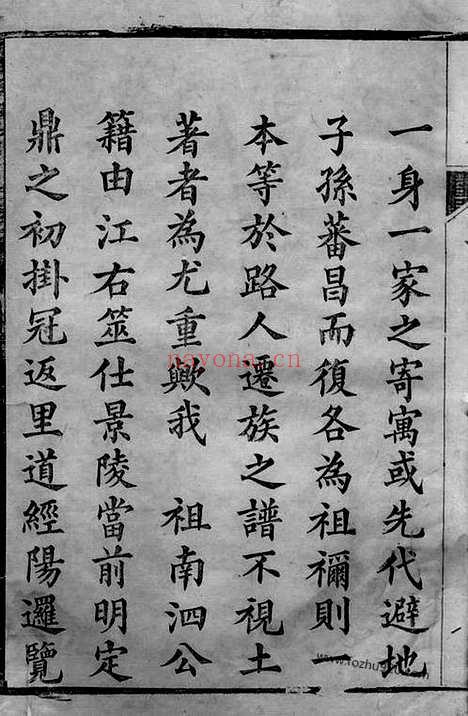 一身一家之寄寓或先代避地
子孫蕃昌而復各為祖禰則一
本等於路人遷族之譜不視土
著者為尤重歟我　祖南泗公
籍由江右筮仕景陵當前明定
鼎之初掛冠返里道經陽邏覽
nayona.cn